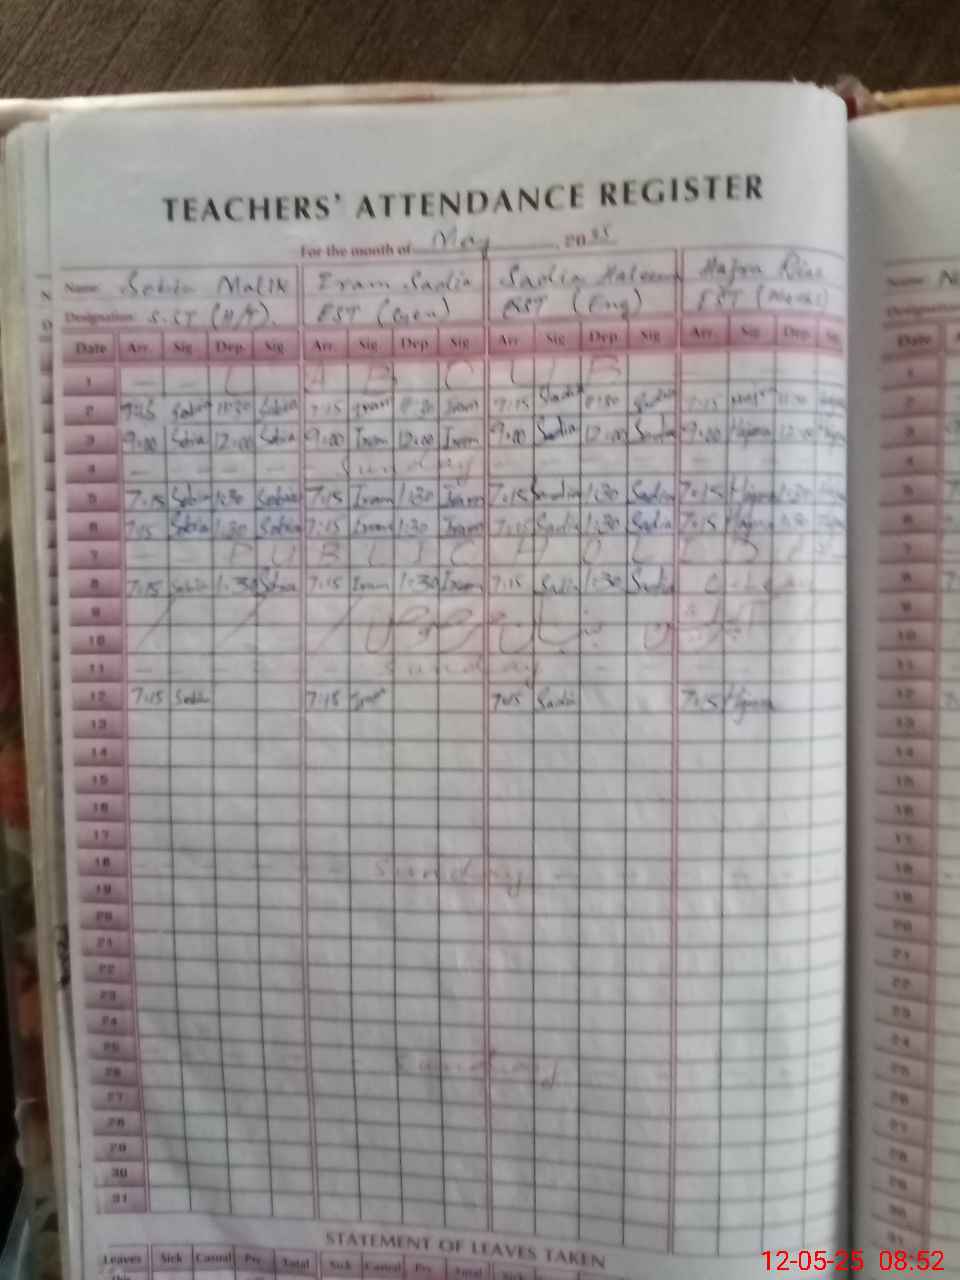 TEACHERS' ATTENDANCE REGISTER
For the month of May 2025
Name Sobia Malik Iram Sadia Sadia Haleem Hajra Riaz
Designation S.ST (H/T). EST (Gen) EST (Eng)
Date Arr. Sig Dep. Sig Arr. Sig Dep. Sig Arr Sig Dep. Sig Arr. Sig Dep. Sig
1 L A B O U R
2 7:15 Sobia 11:30 Sobia 7:15 Iram 11:30 Iram 7:15 Sadia 11:30 Sadia 7:15 11:30
3 9:00 Sobia 12:00 Sobia 9:00 Iram 12:00 Iram 9:00 Sadia 12:00 Sadia 9:00 Hajra 12:00
4 Sunday
5 7:15 Sobia 1:30 Sobia 7:15 Iram 1:30 Iram 7:15 Sadia 1:30 Sadia 7:15 Hajra 1:30
6 7:15 Sobia 1:30 Sobia 7:15 Iram 1:30 Iram 7:15 Sadia 1:30 Sadia 7:15 Hajra 1:30
7 P U B L I C H O L I D
8 7:15 Sobia 1:30 Sobia 7:15 Iram 1:30 Iram 7:15 Sadia 1:30 Sadia C-Leave
9
10
11 Sunday
12 7:15 Sobia 7:15 Iram 7:15 Sadia 7:15 Hajra
13
14
15
16
17
18 Sunday
19
20
21
22
23
24
25 Sunday
26
27
28
29
30
31
STATEMENT OF LEAVES TAKEN
Leaves Sick Casual Prv. Total Sick Casual Prv. Total Sick
12-05-25 08:52